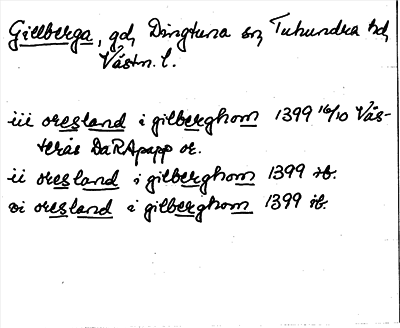 Gillberga, gd, Dingtuna sn, Tuhundra hd,
Västm. l.
iii oresland i gilberghom 1399 16/10 Väs-
terås DaRApapp or.
ii oresland i gilberghom 1399 ib.
vi oresland i gilberghom 1399 ib.